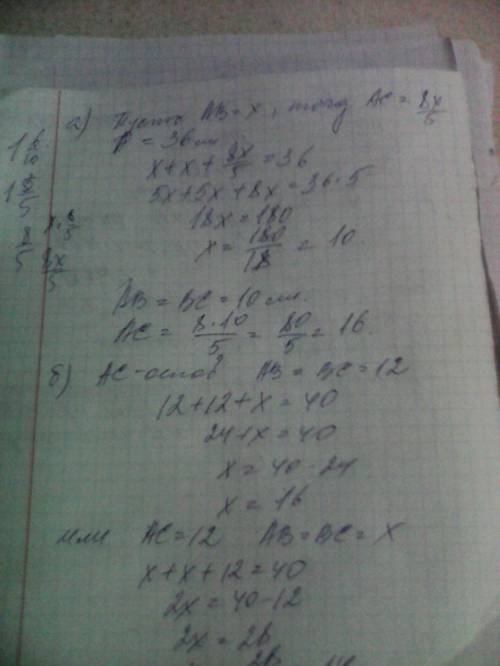 а) Пусть AB = x, тогда AC = 8x/5
P = 36 см
x + x + 8x/5 = 36
5x + 5x + 8x = 36·5
18x = 180
x = 180/18 = 10
AB = BC = 10 см.
AC = 8·10/5 = 80/5 = 16.
б) AC - основ AB = BC = 12
12 + 12 + x = 40
24 + x = 40
x = 40 - 24
x = 16
или AC = 12 AB = BC = x
x + x + 12 = 40
2x = 40 - 12
2x = 28